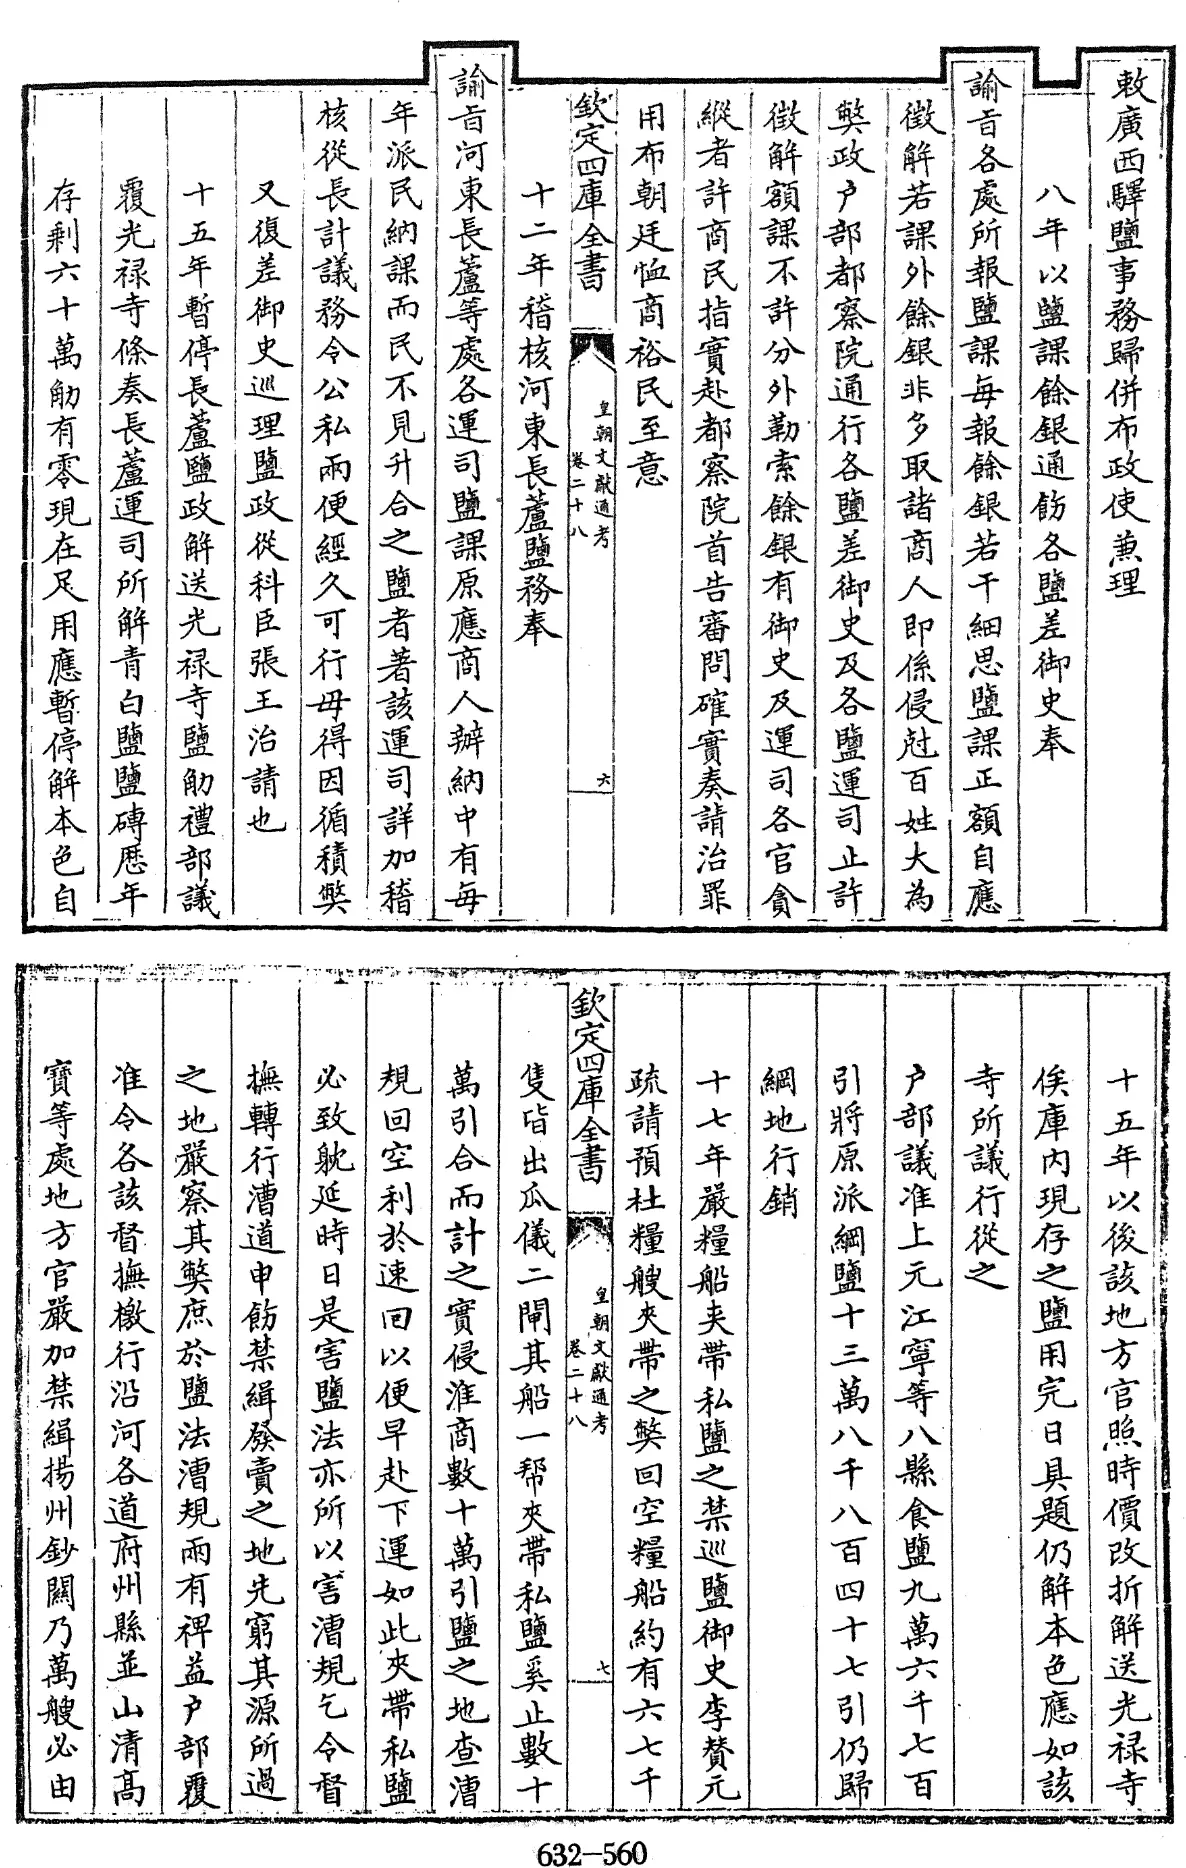 敕廣西驛鹽事務歸併布政使兼理
八年以鹽課餘銀通飭各鹽差御史奉
諭旨各處所報鹽課每報餘銀若干細思鹽課正額自應
徵解若課外餘銀非多取諸商人即係侵尅百姓大為
弊政户部都察院通行各鹽差御史及各鹽運司止許
徵解額課不許分外勒索餘銀有御史及運司各官貪
縱者許商民指實赴都察院首告審問確實奏請治罪
用布朝廷恤商裕民至意
欽定四庫全書
皇朝文獻通考
卷二十八
六
十二年稽核河東長蘆鹽務奉
諭旨河東長蘆等處各運司鹽課原應商人辦納中有每
年派民納課而民不見升合之鹽者著該運司詳加稽
核從長計議務令公私兩便經久可行毋得因循積弊
又復差御史巡理鹽政從科臣張王治請也
十五年暫停長蘆鹽政解送光禄寺鹽觔禮部議
覆光禄寺條奏長蘆運司所解青白鹽鹽磚歴年
存剩六十萬觔有零現在足用應暫停解本色自
十五年以後該地方官照時價改折解送光禄寺
俟庫内現存之鹽用完日具題仍解本色應如該
寺所議行從之
户部議准上元江寧等八縣食鹽九萬六千七百
引將原派綱鹽十三萬八千八百四十七引仍歸
綱地行銷
十七年嚴糧船夹帶私鹽之禁巡鹽御史李贊元
疏請預杜糧艘夾帶之弊回空糧船約有六七千
欽定四庫全書
皇朝文獻通考
卷二十八
七
隻皆出瓜儀二閘其船一幇夾帶私鹽奚止數十
萬引合而計之實侵淮商數十萬引鹽之地查漕
規回空利於速回以便早赴下運如此夾帶私鹽
必致躭延時日是害鹽法亦所以害漕規乞令督
撫轉行漕道申飭禁緝發賣之地先窮其源所過
之地嚴察其弊庶於鹽法漕規兩有裨益户部覆
准令各該督撫檄行沿河各道府州縣並山清高
寶等處地方官嚴加禁緝揚州鈔關乃萬艘必由
632—560